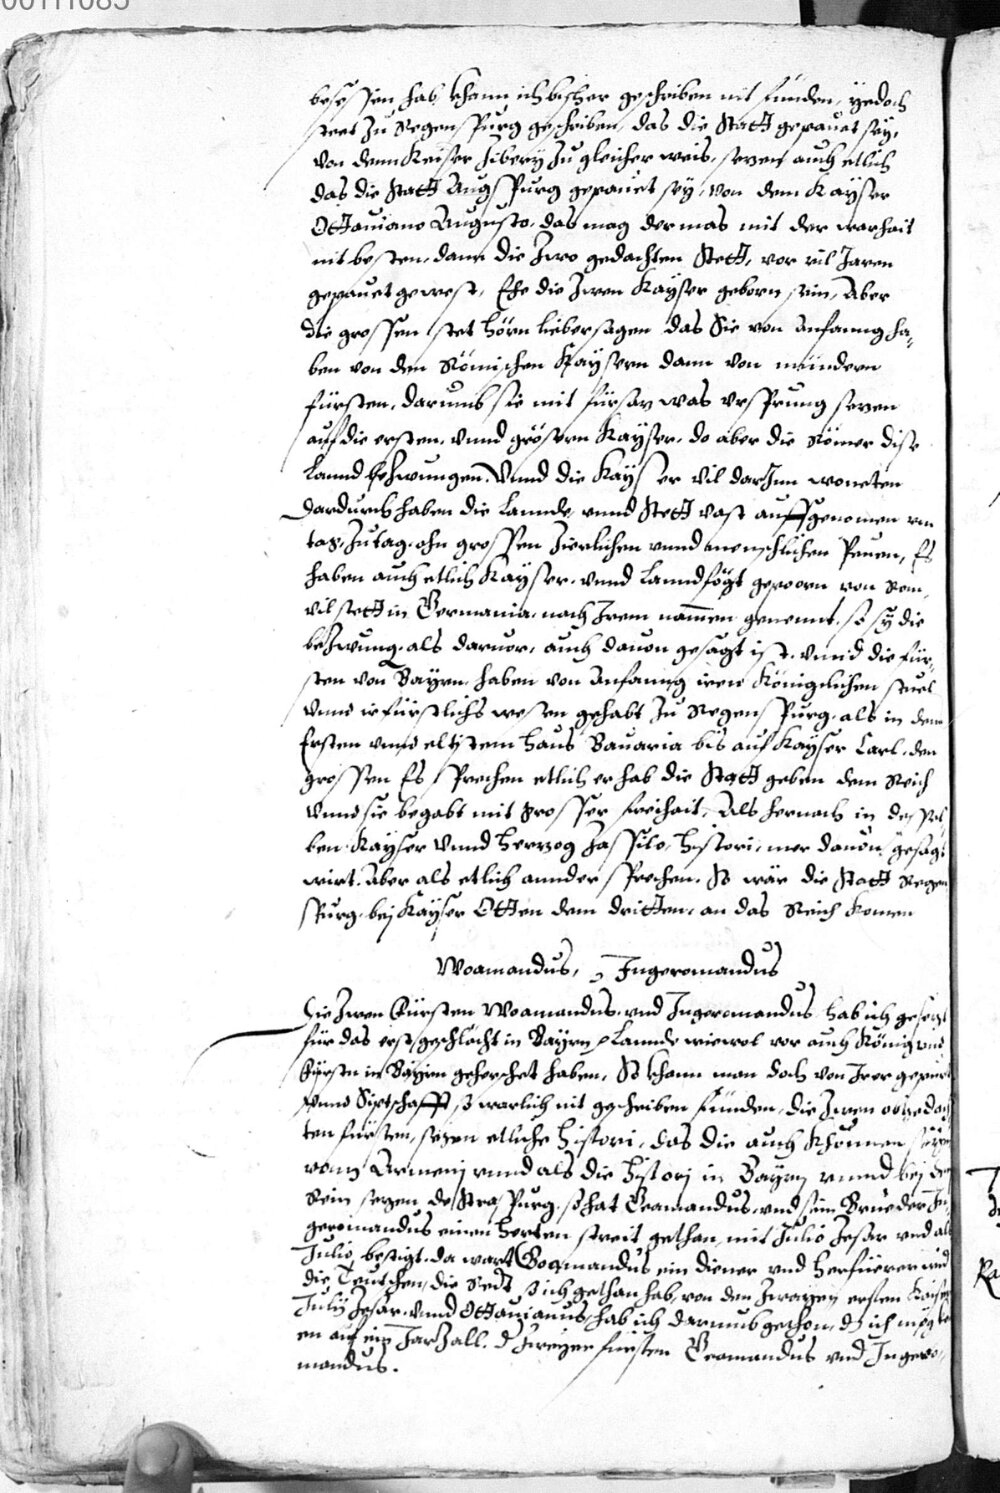 00111085
besessen hab, khann ich bisher geschriben nit finden, yedoch
steet zu Regenspurg geschriben, das die Statt gepauet sey,
von dem Keiser Tibery zu gleicher weis, sezen auch etlich
das die Statt Augspurg gepauet sey, von dem Kayser
Ottauiano Augusto, das mag der mas mit der warhait
nit besten, dann die zwo gedachten Stett, vor vil Jaren
gepauet gewest, Ehe die zwen Kayser geborn sein, Aber
die grossen stet hörn lieber sagen das Sie von Anfanng ha-
ben von den Römischen Kaysern dann von mindern
fürsten, darumb sie mit fürsaz was vrsprung sezen
auf die ersten, vnnd grösern Kayser, do aber die Römer dise
Lannd bezwungen. Vnnd die Kayser vil darJnn woneten
Dardurch haben die Lannde, vnnd Stett vast auffgenomen von
tag, zu tag, ohn grossen zierlichen vnnd menschlichen Peuen, Es
haben auch etlich Kayser, vnnd Lanndfögt geporn von Rom,
vil stett in Germania, nach Jrem nammen genennt, so sy die
bezwung, als daruor, auch dauon gesagt ist. vnnd die für-
sten von Bayrn, haben von Anfanng iren Königlichen stuel
Vnnd ir fürstlichs wesen gehabt zu Regenspurg, als in dem
Ersten vnnd eltistem haus Bauaria bis auf Kayser Carl, den
grossen Es sprechen etlich er hab die Statt geben dem Reich
Vnnd sie begabt mit grosser freihait, Als hernach in desssel-
ben Kayser Vnnd Herzog Tassilo, histori, mer dauon gesagt
wirt. Aber als etlich annder sprechen, So wär die Statt Regen
spurg, bej Kayser Otten dem dritten, an das Reich komen
Woamandus, Jngeromandus
Die zwen Fürsten Woamandus, vnd Jngeromandus hab ich gesezt
für das erst geschlächt in Bayrn Lannde wiewol vor auch König vnd
Fürsten in Bayrn geherschet haben, So khann man doch von Jrer gepurt
Vnnd Sipschafft, so warlich nit geschriben finden, die zwen obgedach
ten fürsten, sezen etliche histori, das die auch khommen seyen
von Armenj vnnd als die histori in Bayrn vnnd bej dem
Rein sezen des Straspurg, so hat Boamandus, vnd sein Brueder Jn-
geromandus einen herten streit gethan, mit Julio Cesar vnd als
Julio, besigt, da wart Boamandus ein diener vnd herfüerer wid
die Teutschen, die Redt, so ich gethan hab, von den zwayen ersten Kaiser
Julij Cesar, vnnd Ottauianus, hab ich darumb gethon, dz ich mög ko
en auf ein Jarzall, d zweyer fürsten Boamandus vnd Jngero-
mandus.